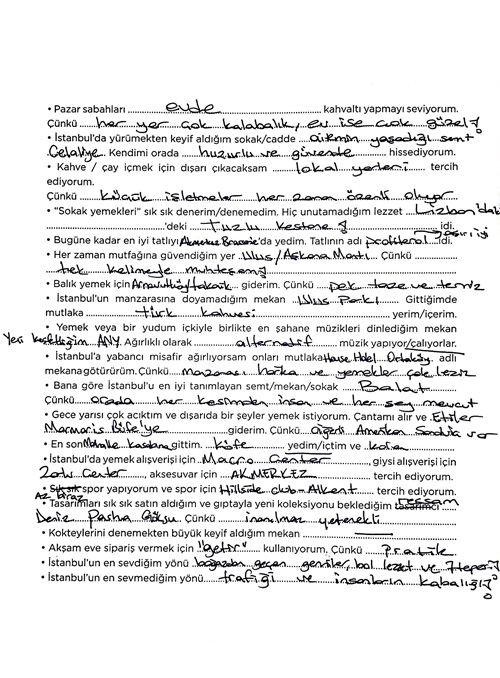 • Pazar sabahları ........evde........ kahvaltı yapmayı seviyorum.
Çünkü ....her yer çok kalabalık, ev ise çok güzel!
• İstanbul'da yürümekten keyif aldığım sokak/cadde ..ailemin yaşadığı semt
Çelaliye. Kendimi orada ......huzurlu ve güvende........ hissediyorum.
• Kahve / çay içmek için dışarı çıkacaksam ......lokal yerleri.... tercih
ediyorum.
Çünkü ......küçük işletmeler her zaman özenli oluyor
• "Sokak yemekleri" sık sık denerim/denemedim. Hiç unutamadığım lezzet ..Lizbon'da
..........'deki ......tuzlu kestane!...... idi.
• Bugüne kadar en iyi tatlıyı Brasserie'da yedim. Tatlının adı profiterol..idi. aşırı iyi
• Her zaman mutfağına güvendiğim yer ..Ulus/Aşkana Mantı.. Çünkü ........
......tek kelimeyle muhteşem!
• Balık yemek için Arnavutköy giderim. Çünkü ..pek taze ve temiz
• İstanbul'un manzarasına doyamadığım mekan ....Ulus Parkı.... Gittiğimde
mutlaka ........türk kahvesi........ yerim/içerim.
• Yemek veya bir yudum içkiyle birlikte en şahane müzikleri dinlediğim mekan
Yeni keşfettiğim ANY. Ağırlıklı olarak ......alternatif...... müzik yapıyor/çalıyorlar.
• İstanbul'a yabancı misafir ağırlıyorsam onları mutlaka House Hotel Ortaköy. adlı
mekana götürürüm. Çünkü ....manzarası harika ve yemekler çok leziz
• Bana göre İstanbul'u en iyi tanımlayan semt/mekan/sokak ......Balat......
Çünkü ....orada her kesimden insan ve her şey mevcut
• Gece yarısı çok acıktım ve dışarıda bir şeyler yemek istiyorum. Çantamı alır ve ..Etiler
Marmaris Büfe'ye...... giderim. Çünkü ..Ciğerli Amerikan Sandviç var
• En son Mahalle Kasabına gittim. ....Köfte.... yedim/içtim ve ..kola
• İstanbul'da yemek alışverişi için ..Macro Center.. giysi alışverişi için
Zorlu Center, aksesuvar için ..AKMERKEZ...... tercih ediyorum.
• Sık sık Az biraz spor yapıyorum ve spor için Hillside club-Alkent.. tercih ediyorum.
• Tasarımları sık sık satın aldığım ve gıptayla yeni koleksiyonu beklediğim tasarımcı ressam
Deniz Pasha Göksu. Çünkü ......inanılmaz yetenekli
• Kokteylerini denemekten büyük keyif aldığım mekan ......—......
• Akşam eve sipariş vermek için .."getir".. kullanıyorum. Çünkü ..Pratik
• İstanbul'un en sevdiğim yönü ..boğazdan geçen gemiler, bol lezzet ve 7tepesi!
• İstanbul'un en sevmediğim yönü ..trafiği ve insanların kabalığı!